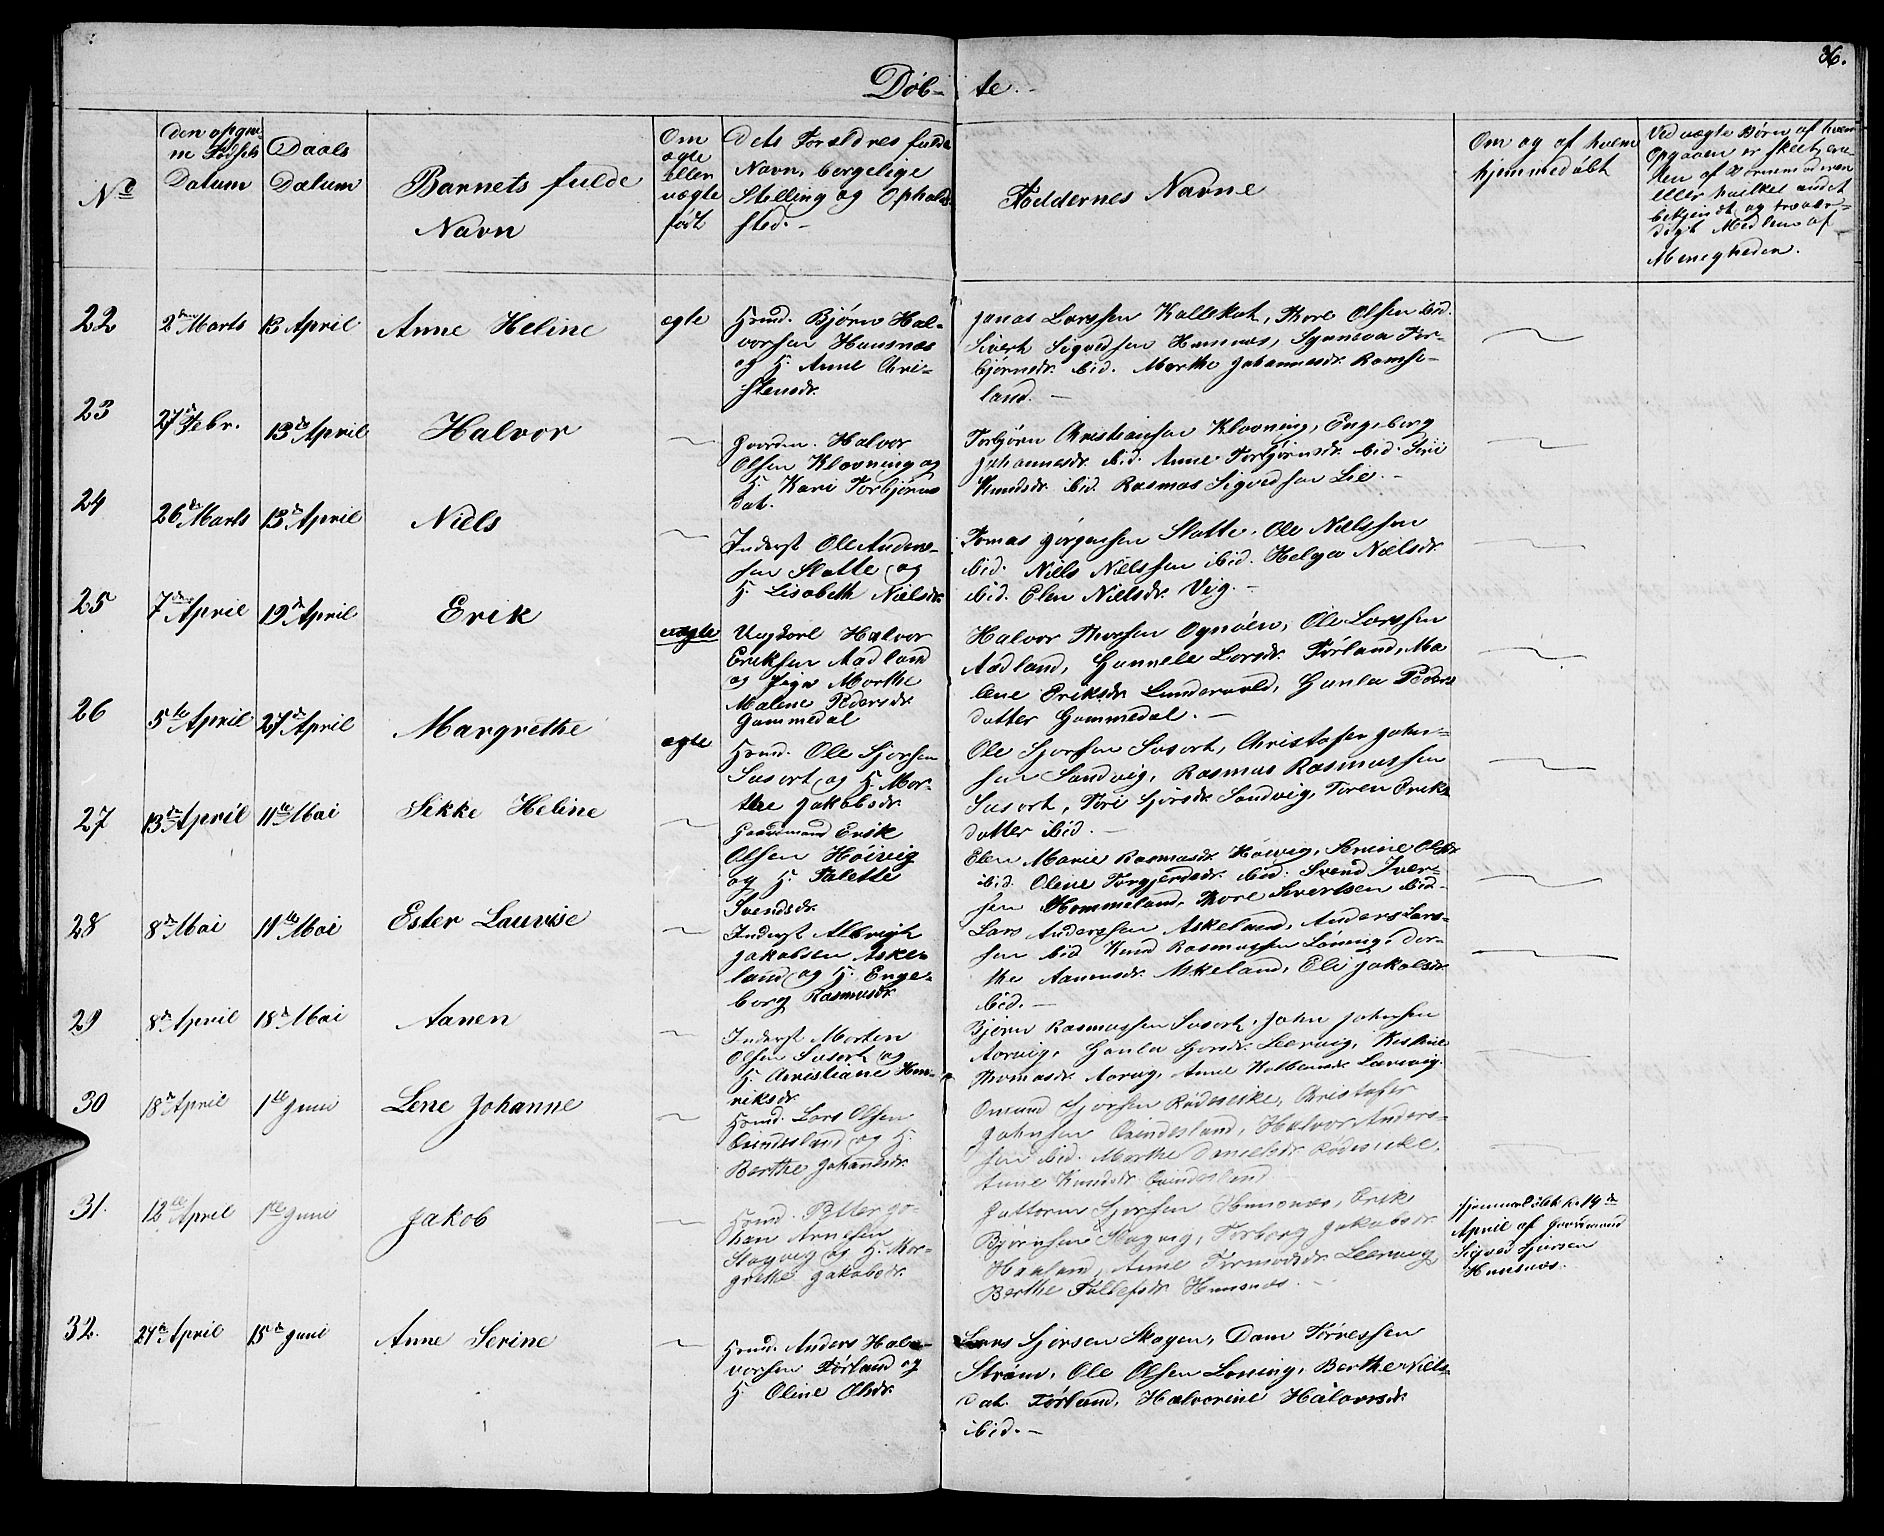 36.
Døb- te.
No
Daabs
Datum
Datum
Barnets fulde
Navn
Om
ægte
eller
uægte
født
Dets Forældres fulde
Navn, borgelige
Stilling og Opholds
sted.
Faddernes Navne
Om og af hvem
hjemmedøbt
Ved uægte Børn af hvem
Opgaven er skeet,
eller hvilket andet
bekjendt og trovær-
digt Medlem af
Menigheden.
22
2den Marts
13 April
Anne Heline
ægte
Hmd. Bjørn Hal-
vorsen Hunsnæs
og H. Anne Chri-
stensdr.
Jonas Larssen Kallekot, Thore Olsen ibid.
Sivert Sigvedsen Hunsnæs, Synneva Tor-
bjørnsdr. ibid. Marthe Johannesdr. Ramse-
land.
23
27de Febr.
13de April
Halvor
Halvor
Olsen Klovning og
H. Kari Torbjørns
dat.
Torbjørn Christiansen Klovning, Engeborg
Johannesdr. ibid. Anne Torbjørnsdr. ibid. Siri
Knudsdr. ibid. Rasmus Sigvedsen Lie.
24
26de Marts
13de April
Niels
Inderst Ole Anders-
sen Slatte og
H. Lisabeth Nielsdr.
Tomas Jørgensen Slatte, Ole Nielssen
ibid. Niels Nielssen ibid. Helga Nielsdr.
ibid. Elen Nielsdr. Vig.
25
7de April
19de April
Erik
uægte
Ungkarl Halvor
Eriksen Aadland
og Pige Marthe
Malene Pedersdr.
Gammedal
Halvor Thorsen Ognøen, Ole Larssen
Aadland, Gunnele Larsdr. Førland, Ma
lene Eriksdr. Lundervold, Gunla Peders
datter Gammedal.
26
5te April
27de April
Margrethe
ægte
Hmd. Ole Sjorsen
Susort og H. Mar-
the Jakobsdr.
Ole Sjorsen Susort, Christofer John-
sen Sandvig, Rasmus Rasmussen
Susort, Siri Sjorsdr. Sandvig, Toren Eriks
datter ibid.
27
13de April
11te Mai
Sikke Heline
Gaardmand Erik
Olsen Høivig
og H. Talette
Svendsdr.
Elen Marie Rasmusdr. Høivig, Serine Olsdr
ibid. Oline Torgjerdsdr. ibid. Svend Iver-
sen Hommeland, Thore Sivertsen ibid.
28
8de Mai
11te Mai
Ester Lauvise
Inderst Albrigt
Jakobsen Aske-
land og H. Enge-
borg Rasmusdr.
Lars Anderssen Askeland, Anders Lars-
sen ibid. Knud Rasmussen Løning, Dor-
the Aanensdr. Askeland, Eli Jakobsdr.
ibid.
29
8de April
18de Mai
Aanen
Inderst Morten
Olsen Susort og
H. Christiane Hen-
riksdr.
Bjørn Rasmussen Susort, John Johnsen
Aarvig, Gunla Sjorsdr. Leervig,
Thomasdr. Aarvig, Anne Kolbensdr. Leervig.
30
18de April
1ste Juni
Lene Johanne
Hmd. Lars Olsen
Qvindesland og H.
Berthe Johanesdr.
Omund Sjorsen Rødeseike, Christofer
Johnsen Qvindesland, Halvor Anders-
sen ibid. Marthe Danielsdr. Rødeseike,
Anne Knudsdr. Qvindesland.
31.
12te April
1ste Juni
Jakob
Hmd. Petter Jo-
han Arnesen
Stagvig og H. Mar-
grethe Jakobsdr.
Guttorm Sjorsen Hunsnæs, Erik
Bjørnsen Stagvig, Torborg Jakobsdr.
Haaland, Anne Tormodsdr. Leervig
Berthe Tollefsdr. Hunsnæs.
Hjemmedøbt d. 14de
April af Gaardmand
Sigved Sjursen
Hunsnæs.
32.
27de April
15de Juni
Anne Serine
Hmd. Anders Hal-
vorsen Førland og
H. Oline Olsdr.
Lars Sjorsen Skogen, Dam Tørressen
Strøm, Ole Olsen Loning, Berthe Niels-
dat. Førland, Halvorine Halvorsdr.
ibid.